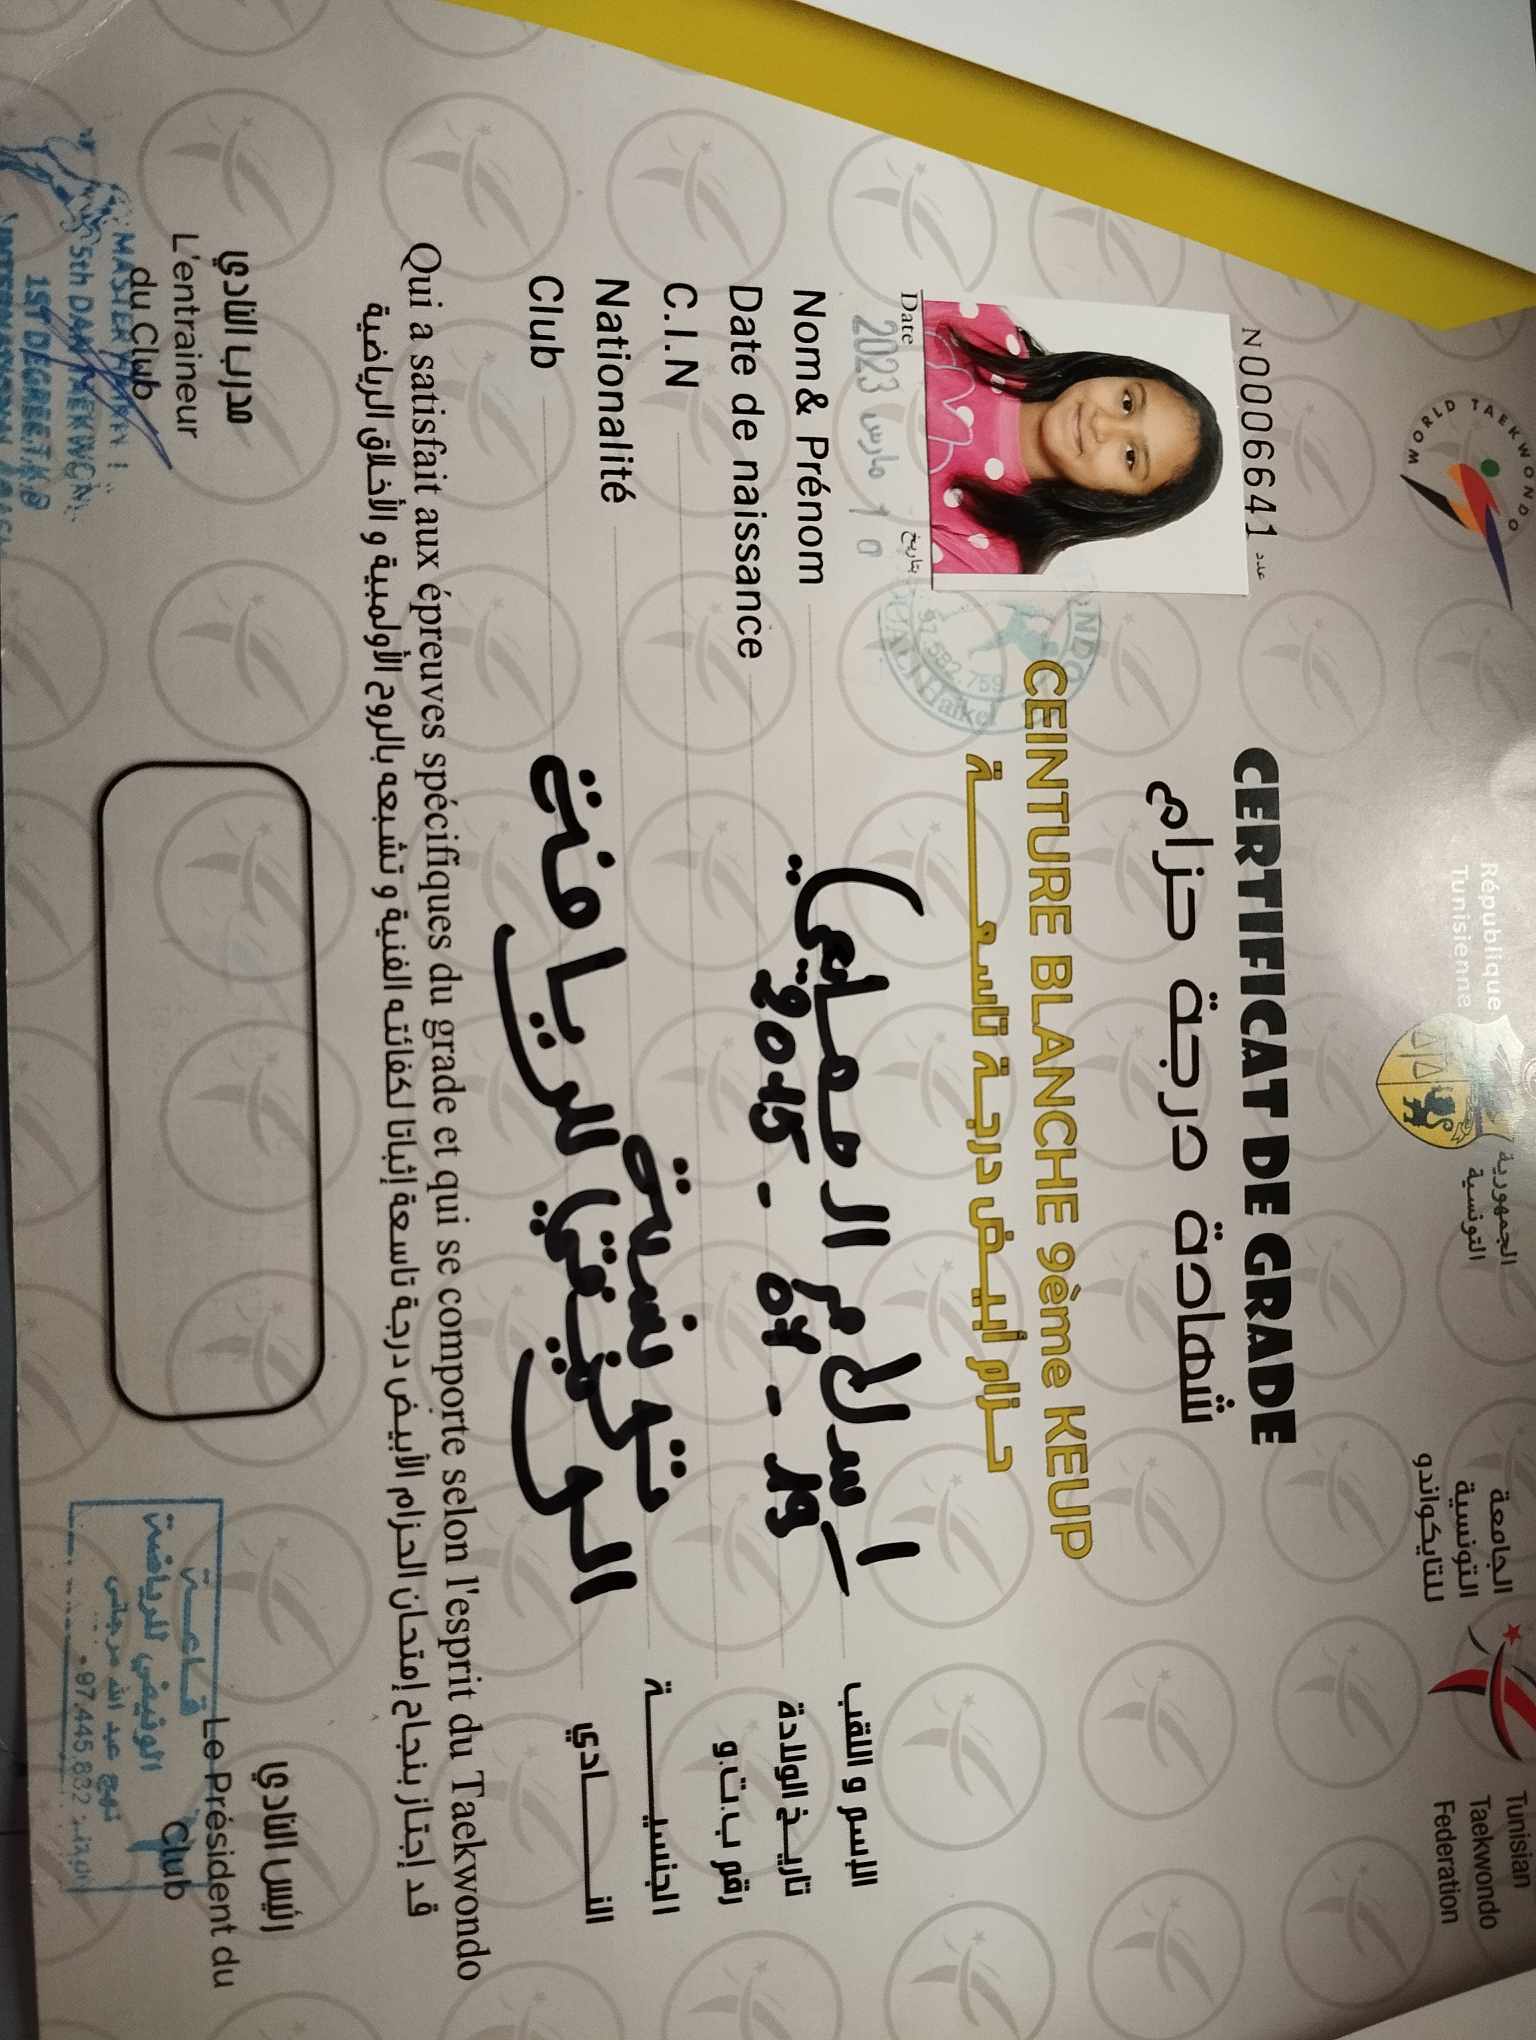 WORLD TAEKWONDO
République
Tunisienne
الجمهورية
التونسية
الجامعة
التونسية
للتايكواندو
Tunisian
Taekwondo
Federation
N0006641 عدد
CERTIFICAT DE GRADE
شهادة درجة حزام
CEINTURE BLANCHE 9ème KEUP
حزام أبيض درجة تاسعة
Date 2023 مارس بتاريخ
97.582.759
Haikel
Nom& Prénom الإسم و اللقب
Date de naissance 2015 - تاريخ الولادة
C.I.N رقم ب.ت.و
Nationalité تونسية الجنسية
Club للرياضة النادي
Qui a satisfait aux épreuves spécifiques du grade et qui se comporte selon l'esprit du Taekwondo
قد إجتاز بنجاح إمتحان الحزام الأبيض درجة تاسعة إثباتا لكفائته الفنية و تشبعه بالروح الأولمبية و الأخلاق الرياضية
مدرب النادي
L'entraineur
du Club
MASTER
5th DAN
1ST DEGREE
رئيس النادي
Le Président du
Club
قاعة
للرياضة
نهج عبد الله
97.445.832